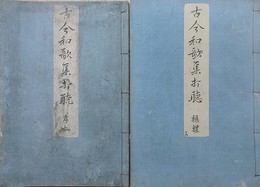 古今和歌集打聴
古今和歌集打聴